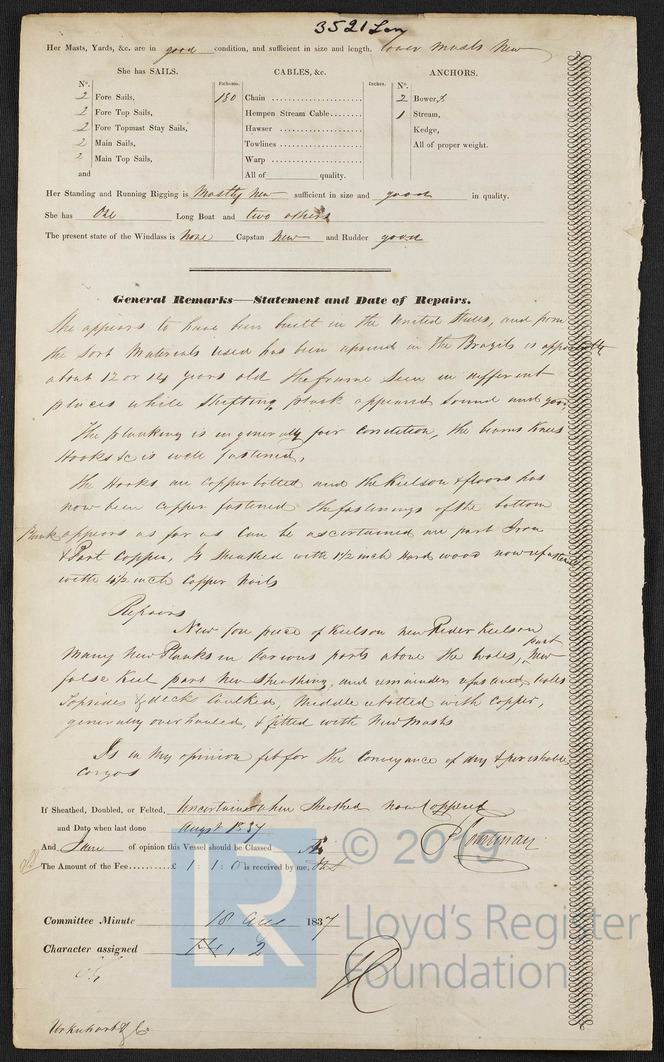 3521 Lon
Her Masts, Yards, &c. are in good condition, and sufficient in size and length. lower masts New
She has SAILS. CABLES, &c. ANCHORS.
N°. Fathoms. Inches. N°.
2 Fore Sails, 180 Chain 2 Bowers,
2 Fore Top Sails, Hempen Stream Cable 1 Stream,
2 Fore Topmast Stay Sails, Hawser Kedge,
2 Main Sails, Towlines All of proper weight.
2 Main Top Sails, Warp
and All of quality.
Her Standing and Running Rigging is Mostly New sufficient in size and good in quality.
She has One Long Boat and two others
The present state of the Windlass is None Capstan New and Rudder good
General Remarks—Statement and Date of Repairs.
She appears to have been built in the United States, and from
the sort Materials used has been in the Brazils is apparently
about 12 or 14 years old the frame seen in different
places while shifting plank appeared sound and good
The planking is in generally fair condition, the beams Knees
Hooks &c is well fastened,
The Hooks are Copper bolted and the Keelson & floors has
now been copper fastened The fastenings of the bottom
Plank appears as far as can be ascertained are part Iron
& Part Copper, Is sheathed with 1½ inch Hard wood now refastened
with 4½ inch Copper Nails
Repairs
New fore piece of Keelson new Rider Keelson
Many New Planks in various parts above the Wales, part New
false Keel part New Sheathing, and remainder refastened, Wales
Topsides & deck Caulked, Middle bolted with Copper,
generally overhauled, & fitted with New masts
Is in my opinion fit for the Conveyance of dry & perishable
cargos
If Sheathed, Doubled, or Felted, Uncertain when Sheathed now Coppered
and Date when last done Augst 1837
And I am of opinion this Vessel should be Classed Æ
The Amount of the Fee £ 1 : 1 : 0 is received by me,
Committee Minute 18 Aug 1837
Character assigned Æ, 2
Urkuhart & Co
© 2019
LR
Lloyd's Register
Foundation